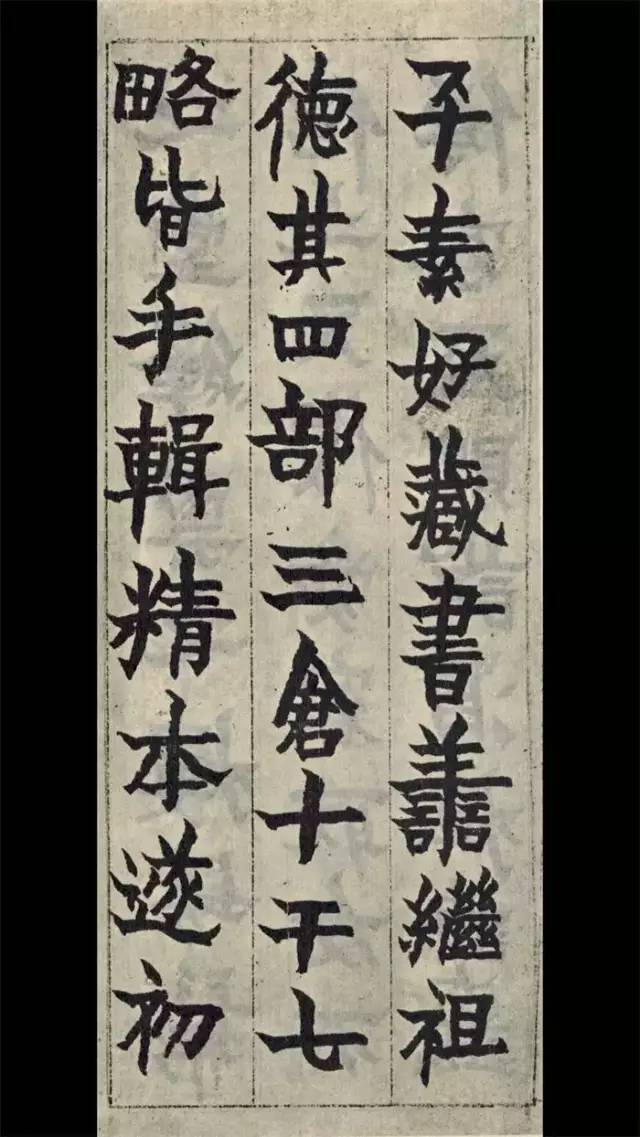 子素好藏書譱繼祖
徳其四部三倉十干七
略皆手輯精本遂初